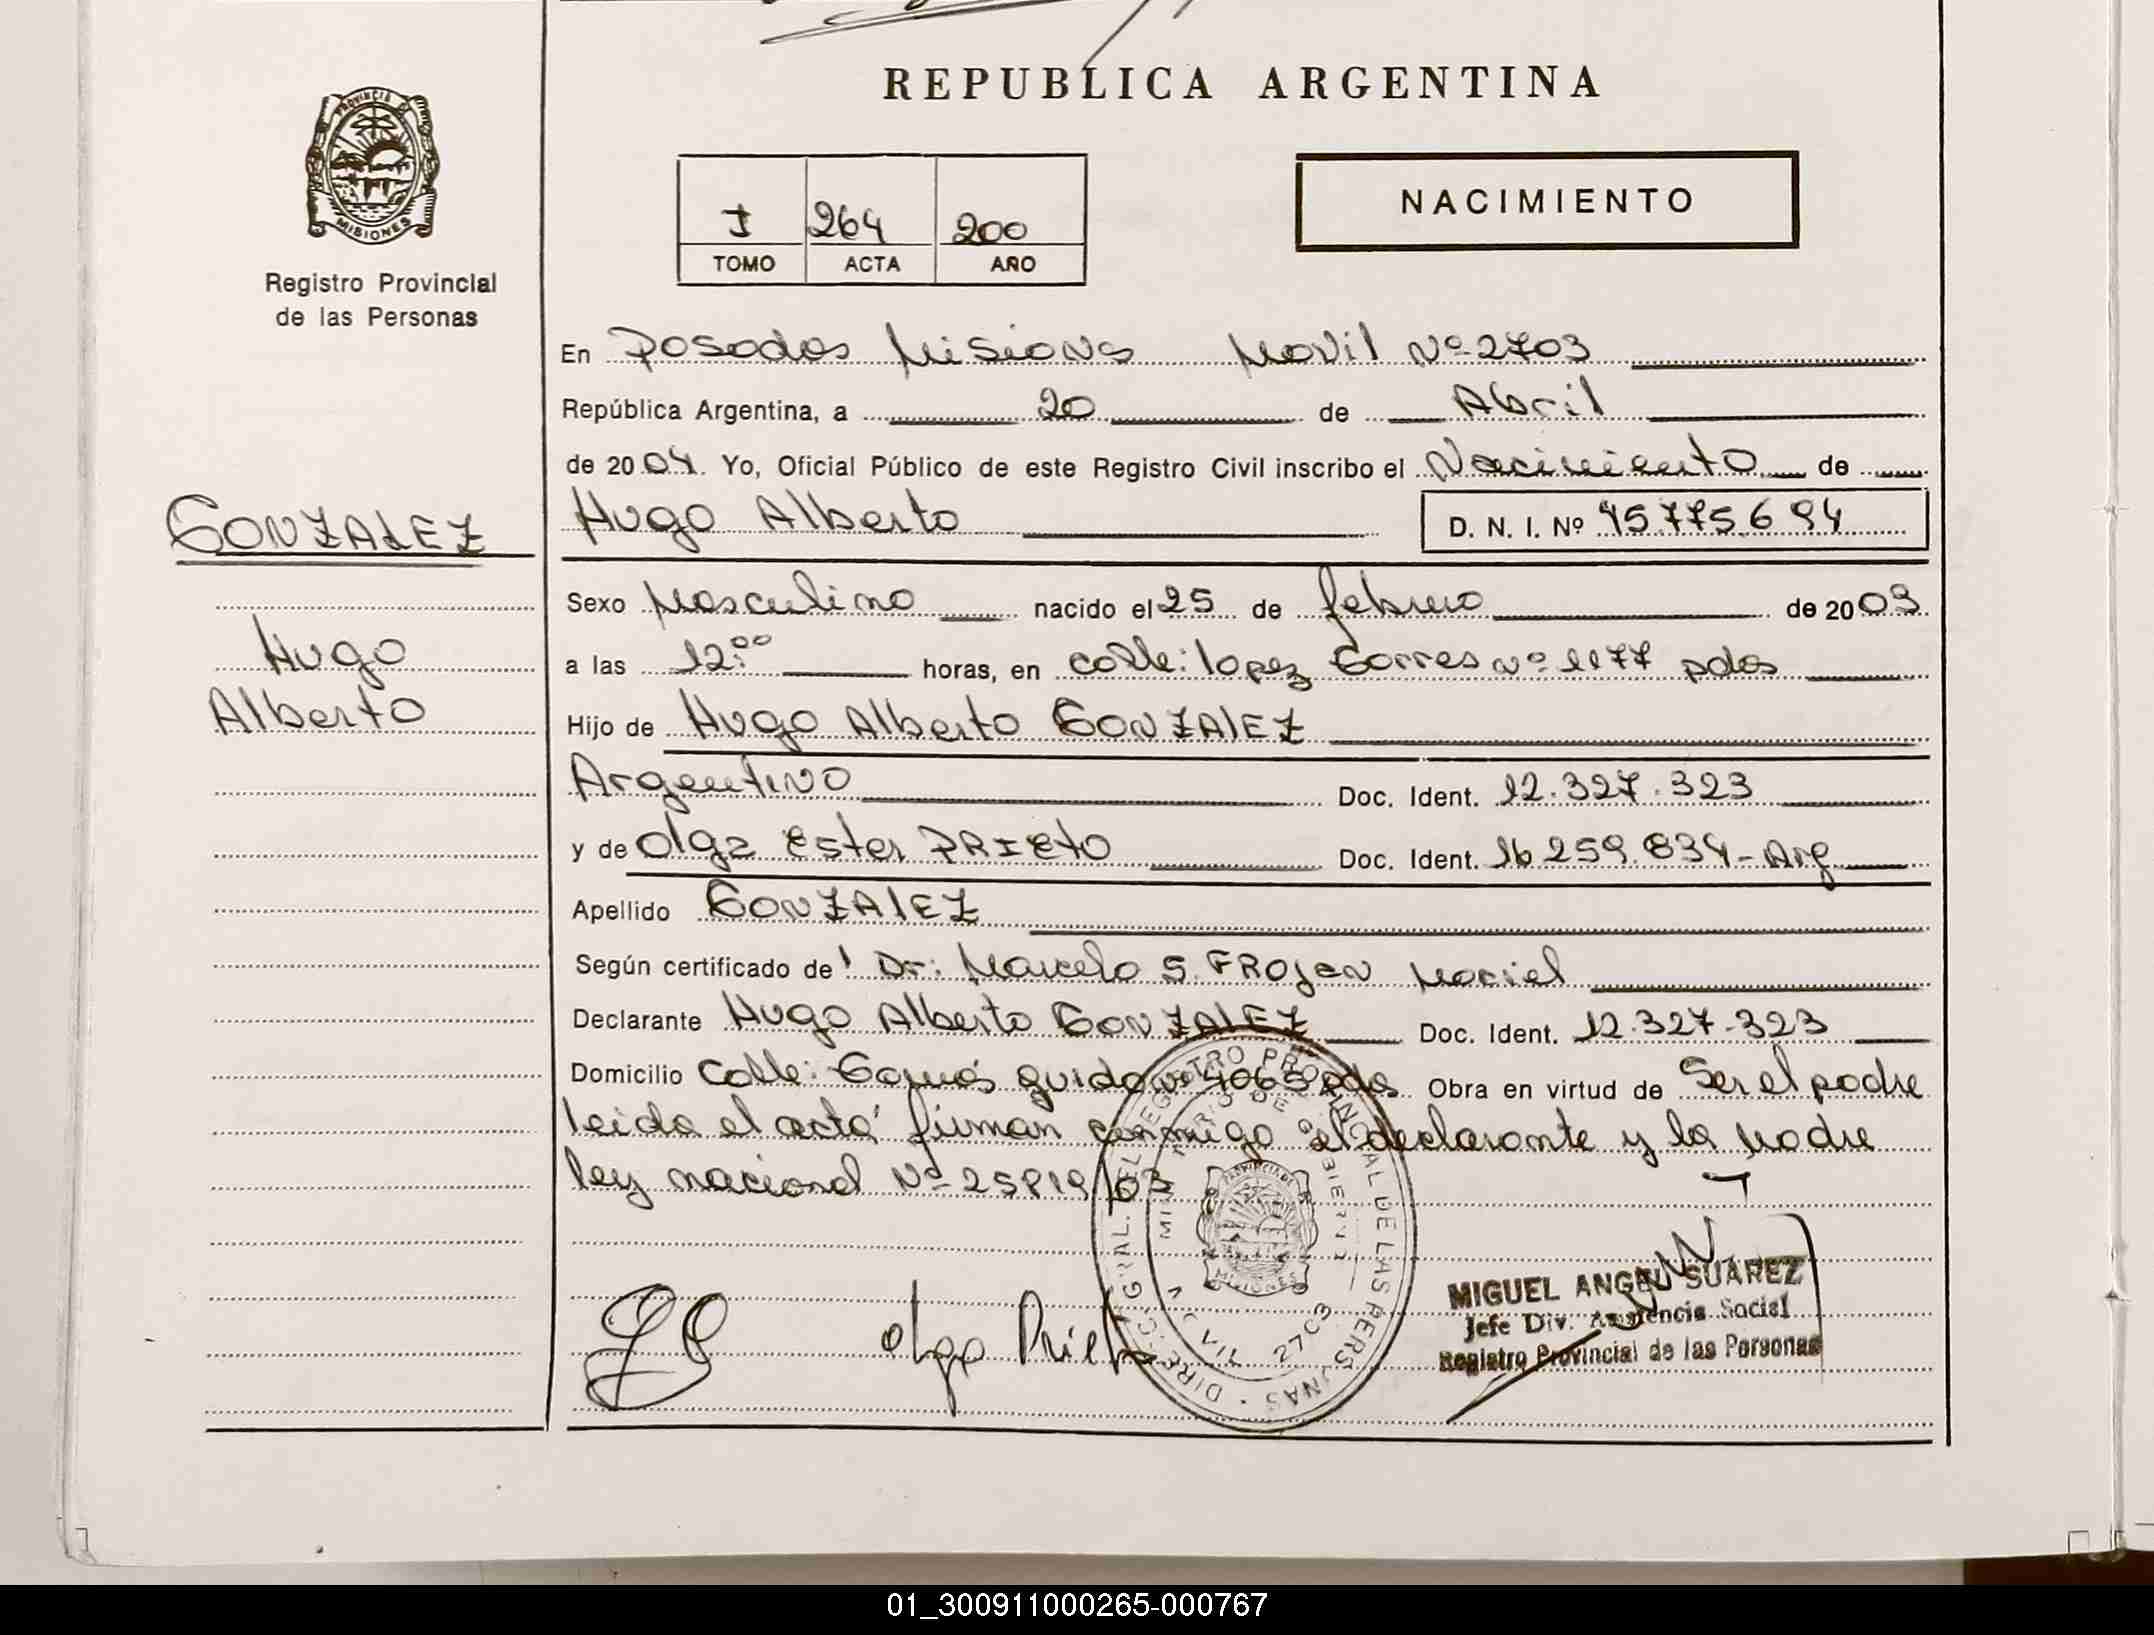 REPUBLICA ARGENTINA
PROVINCIA DE
MISIONES
Registro Provincial
de las Personas
I 264 200
TOMO ACTA AÑO
NACIMIENTO
En Posadas Misiones Movil Nº 2703
República Argentina, a 20 de Abril
de 2004. Yo, Oficial Público de este Registro Civil inscribo el Nacimiento de
GONZALEZ
Hugo Alberto
D. N. I. Nº 45.775.694
Sexo Masculino nacido el 25 de febrero de 2003
Hugo
Alberto
a las 12:00 horas, en calle: lopez torres nº 1177 pdas
Hijo de Hugo Alberto GONZALEZ
Argentino Doc. Ident. 12.327.323
y de Olga Ester PRIETO Doc. Ident. 16.259.834 - Arg
Apellido GONZALEZ
Según certificado de Dr: Marcelo S. FROJEN Maciel
Declarante Hugo Alberto GONZALEZ Doc. Ident. 12.327.323
Domicilio Calle: Tomás guido nº 4065 pdas Obra en virtud de Ser el padre
leida el acta firman conmigo el declarante y la madre
ley nacional Nº 25819/03
DIREC. GRAL. DEL REGISTRO PROVINCIAL DE LAS PERSONAS
MOVIL 2703
PROVINCIA DE
MISIONES
Olga Prieto
MIGUEL ANGEL SUAREZ
Jefe Div. Asistencia Social
Registro Provincial de las Personas
01_300911000265-000767